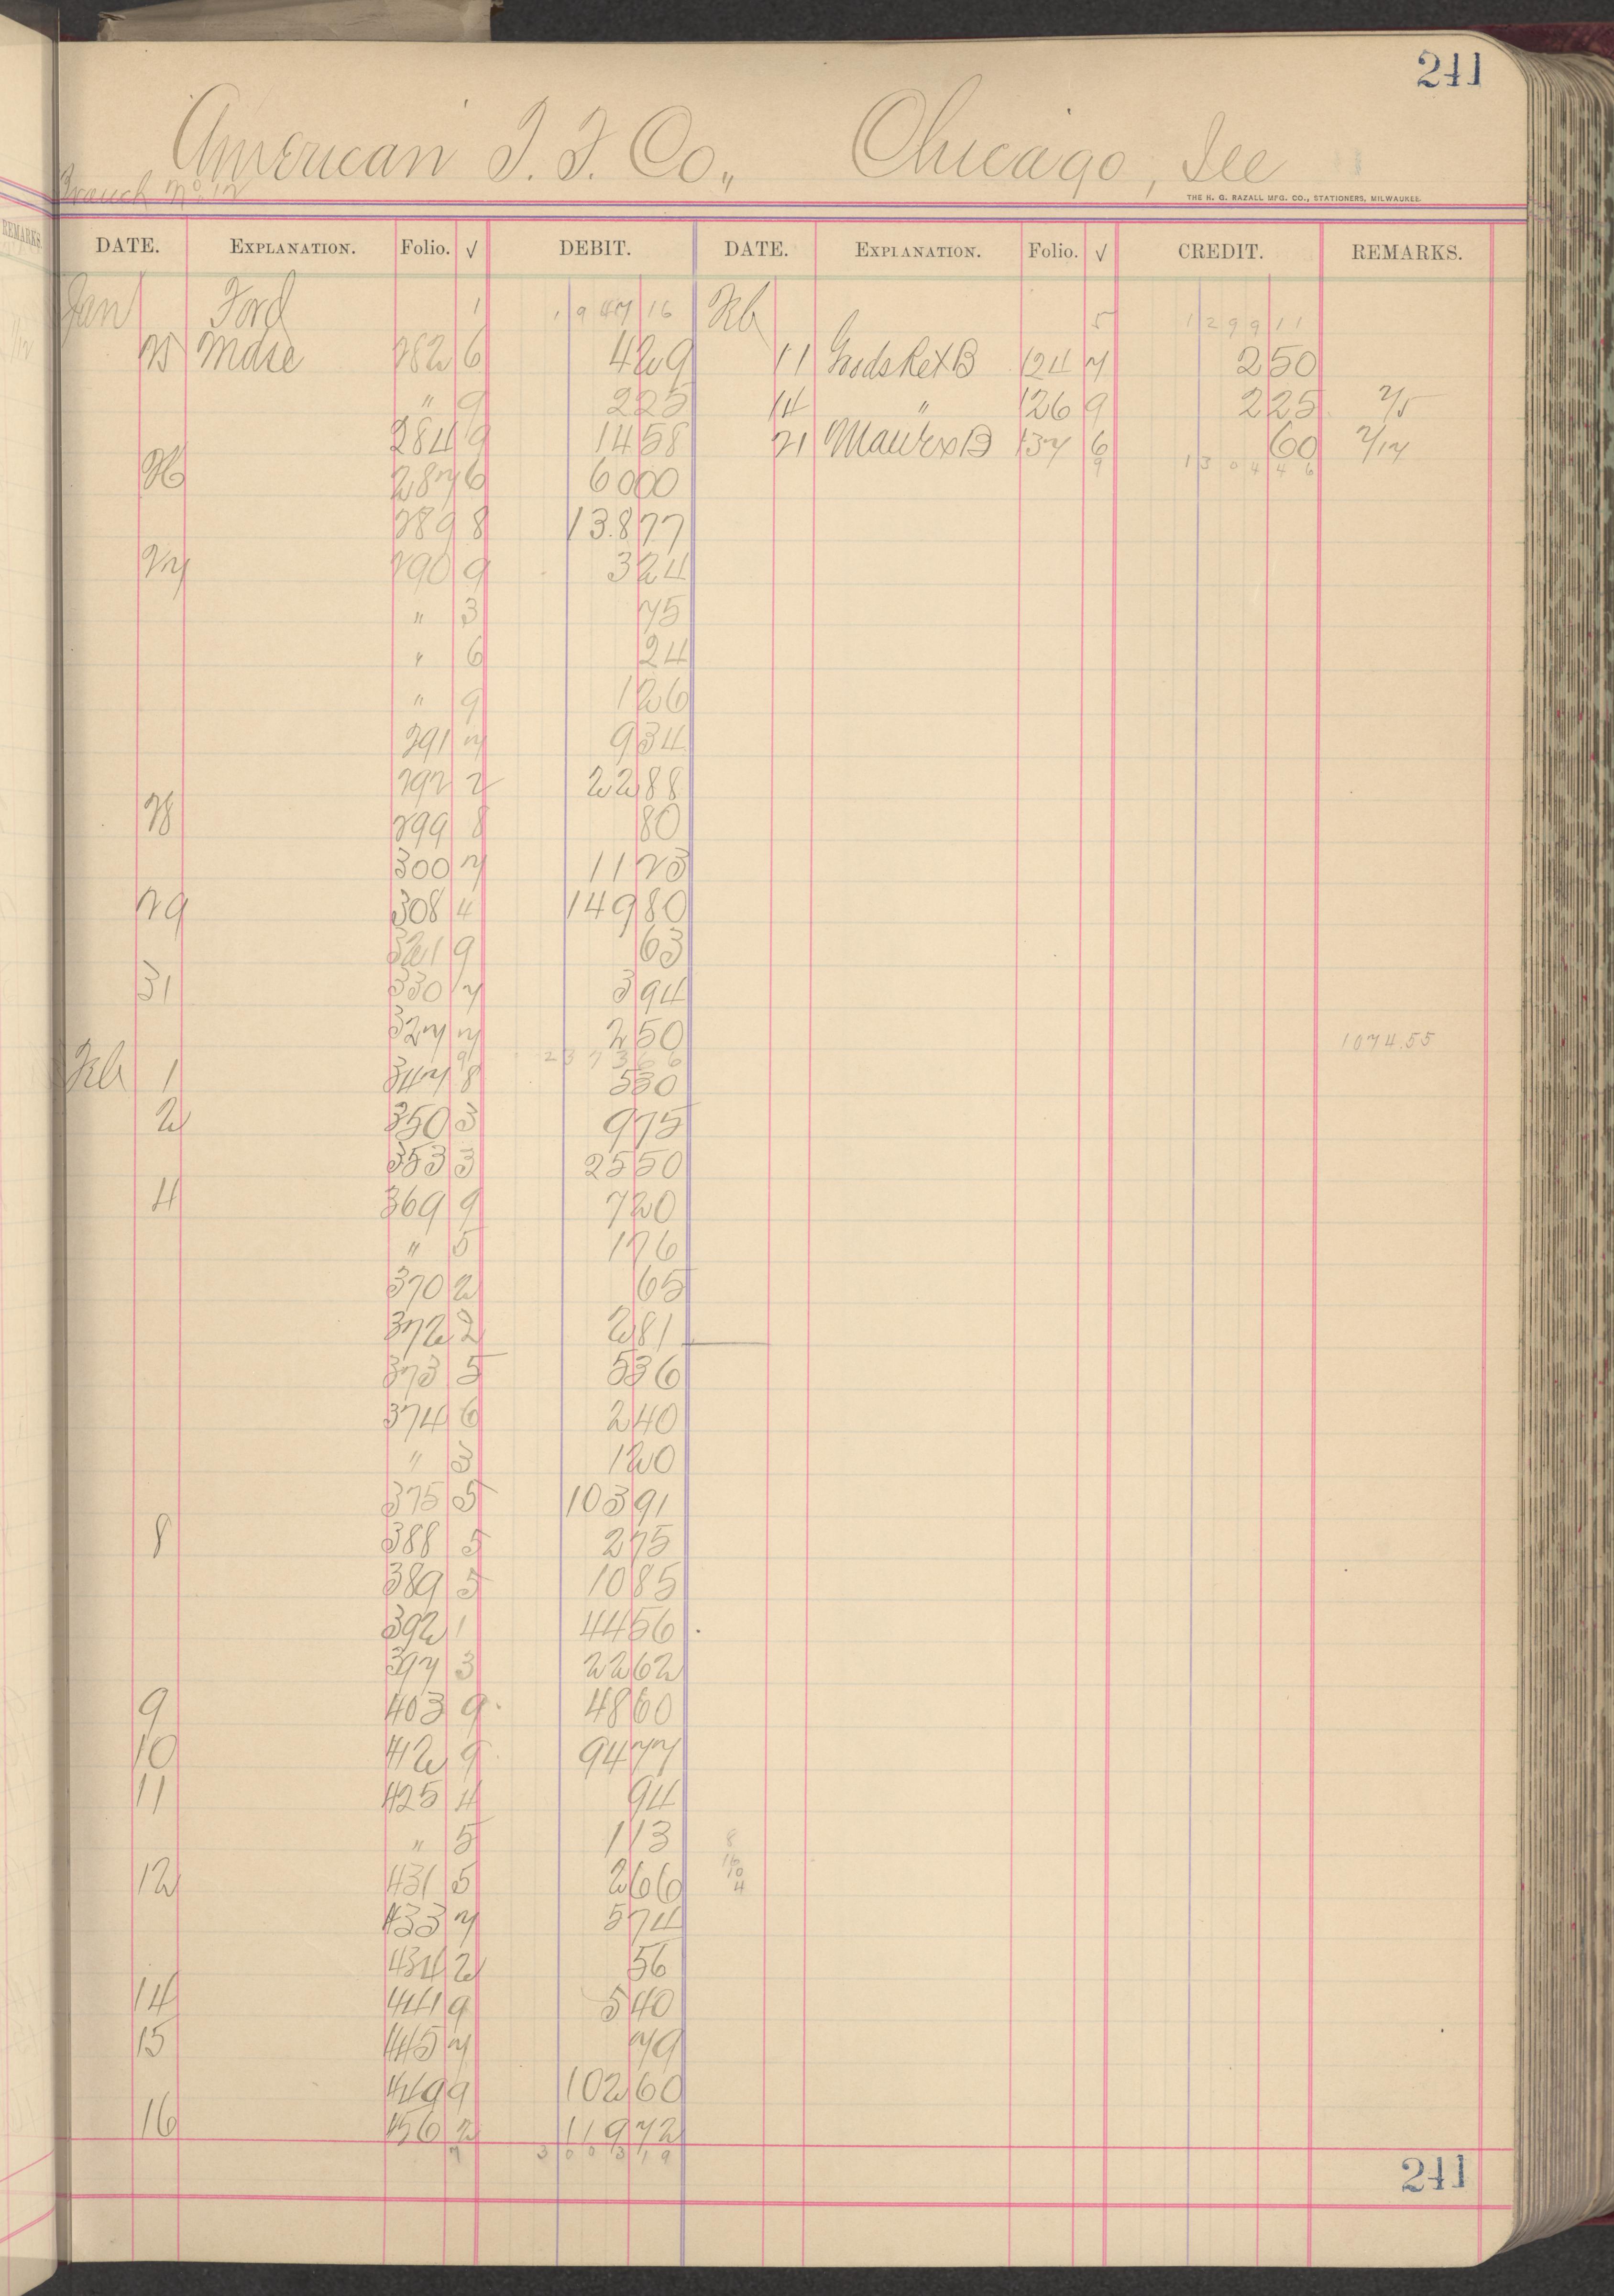 241
American T. F. Co., Chicago, Ill
Branch No. 12
THE H. G. RAZALL MFG. CO., STATIONERS, MILWAUKEE.
DATE. EXPLANATION. Folio. √ DEBIT. DATE. EXPLANATION. Folio. √ CREDIT. REMARKS.
Jan Ford 1 1947 16 Feb 5 1299 11
25 Mdse 282 6 4 29 11 Goods Ret B 124 7 2 50
" 9 2 25 14 " 126 9 2 25 2/5
284 9 14 58 21 137 6 60 2/17
9 1304 46
26 287 6 60 00
289 8 13.8 77
27 290 9 3 24
" 3 75
" 6 24
" 9 1 26
291 7 9 34
292 2 22 88
28 299 8 80
300 7 11 23
29 308 4 149 80
321 9 63
31 330 7 3 94
327 7 2 50 1074.55
9 2373 66
Feb 1 347 8 5 30
2 350 3 9 75
353 3 25 50
4 369 9 7 20
" 5 1 76
370 2 65
372 2 2 81
373 5 5 36
374 6 2 40
" 3 1 20
375 5 103 91
8 388 5 2 75
389 5 10 85
392 1 44 56
397 3 22 62
9 403 9 48 60
10 412 9 94 77
11 425 4 94
" 5 1 13
12 431 5 2 66
433 7 5 74
434 2 56
14 441 9 5 40
15 445 7 79
449 9 102 60
16 456 2 119 72
7 3003 19
241